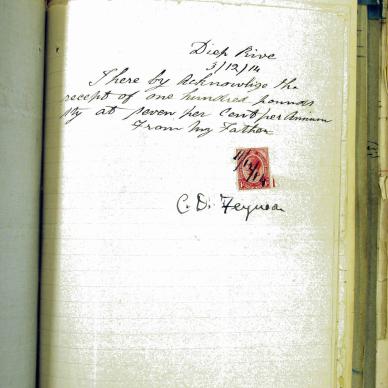 Diep Rive
3/12/14
I here by Acknowlige the
recept of one hundred pounds
sty at seven per Cent per Annum
From my Father
3/12/14
C. D.